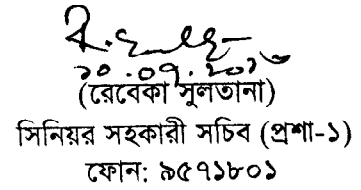 ১০.০৭.২০১৬
(রেবেকা সুলতানা)
সিনিয়র সহকারী সচিব (প্রশা-১)
ফোন: ৯৫৭১৮০১